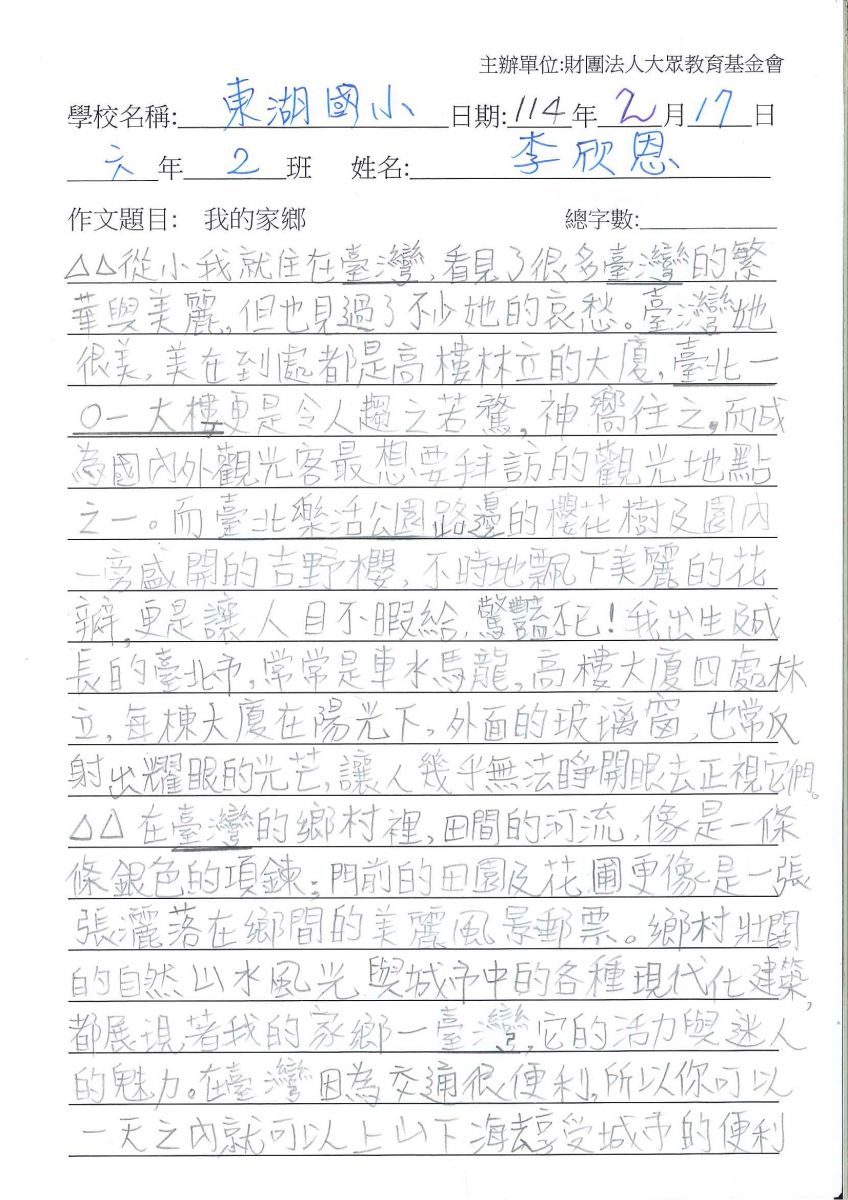 主辦單位:財團法人大眾教育基金會
學校名稱:東湖國小 日期:114年2月17日
六年2班 姓名:李欣恩
作文題目: 我的家鄉 總字數:
△△從小我就住在臺灣,看見了很多臺灣的繁
華與美麗,但也見過了不少她的哀愁。臺灣她
很美,美在到處都是高樓林立的大廈,臺北一
〇一大樓,更是令人趨之若鶩,神嚮往之。而成
為國內外觀光客最想要拜訪的觀光地點
之一。而臺北樂活公園路邊的櫻花樹及園內
一旁盛開的吉野櫻,不時地飄下美麗的花
瓣,更是讓人目不暇給,驚豔不已!我出生及成
長的臺北市,常常是車水馬龍,高樓大廈四處林
立,每棟大廈在陽光下,外面的玻璃窗,也常反
射出耀眼的光芒,讓人幾乎無法睜開眼去正視它們。
△△在臺灣的鄉村裡,田間的河流,像是一條
條銀色的項鍊;門前的田園及花圃更像是一張
張灑落在鄉間的美麗風景郵票。鄉村壯闊
的自然山水風光與城市中的各種現代化建築,
都展現著我的家鄉一臺灣,它的活力與迷人
的魅力。在臺灣因為交通很便利,所以你可以
一天之內就可以上山下海去享受城市的便利